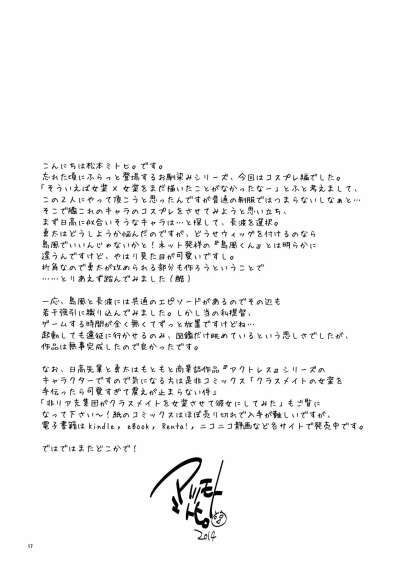 こんにちは松本ミトヒ。です。
忘れた頃にふらっと登場するお馴染みシリーズ、今回はコスプレ編でした。
「そういえば女装×女装をまだ描いたことがなかったなー」とふと考えまして、
この2人にやって頂こうと思ったんですが普通の制服ではつまらないしなぁと…
そこで艦これのキャラのコスプレをさせてみようと思い立ち、
まず日高に似合いそうなキャラは…と探して、長波を選択。
勇太はどうしようか悩んだのですが、どうせウィッグを付けるのなら
島風でいいんじゃないかと!ネット発祥の『島風くん』とは明らかに
違うんですけど、やはり見た目が可愛いですし。
折角なので勇太が攻められる部分も作ろうということで
……とりあえず踏んでみました(酷)
一応、島風と長波には共通のエピソードがあるのでその辺も
若干強引に織り込んでみました。しかし当の私提督、
ゲームする時間が全く無くてずっと放置ですけどね…
起動しても遠征に行かせるのみ、図鑑だけ眺めているという悲しさでしたが、
作品は無事完成したので良かったです。
なお、日高先輩と勇太はもともと商業誌作品『アクトレス』シリーズの
キャラクターですので気になる方は是非コミックス「クラスメイトの女装を
手伝ったら可愛すぎて震えが止まらない件」
「非リア充集団がクラスメイトを女装させて彼女にしてみた」もご覧に
なって下さい〜!紙のコミックスはほぼ売り切れで入手が難しいですが、
電子書籍はkindle, eBook, Renta!, ニコニコ静画などをサイトで発売中です。
ではではまたどこかで!
マツモト
ミトヒ。
2014
17